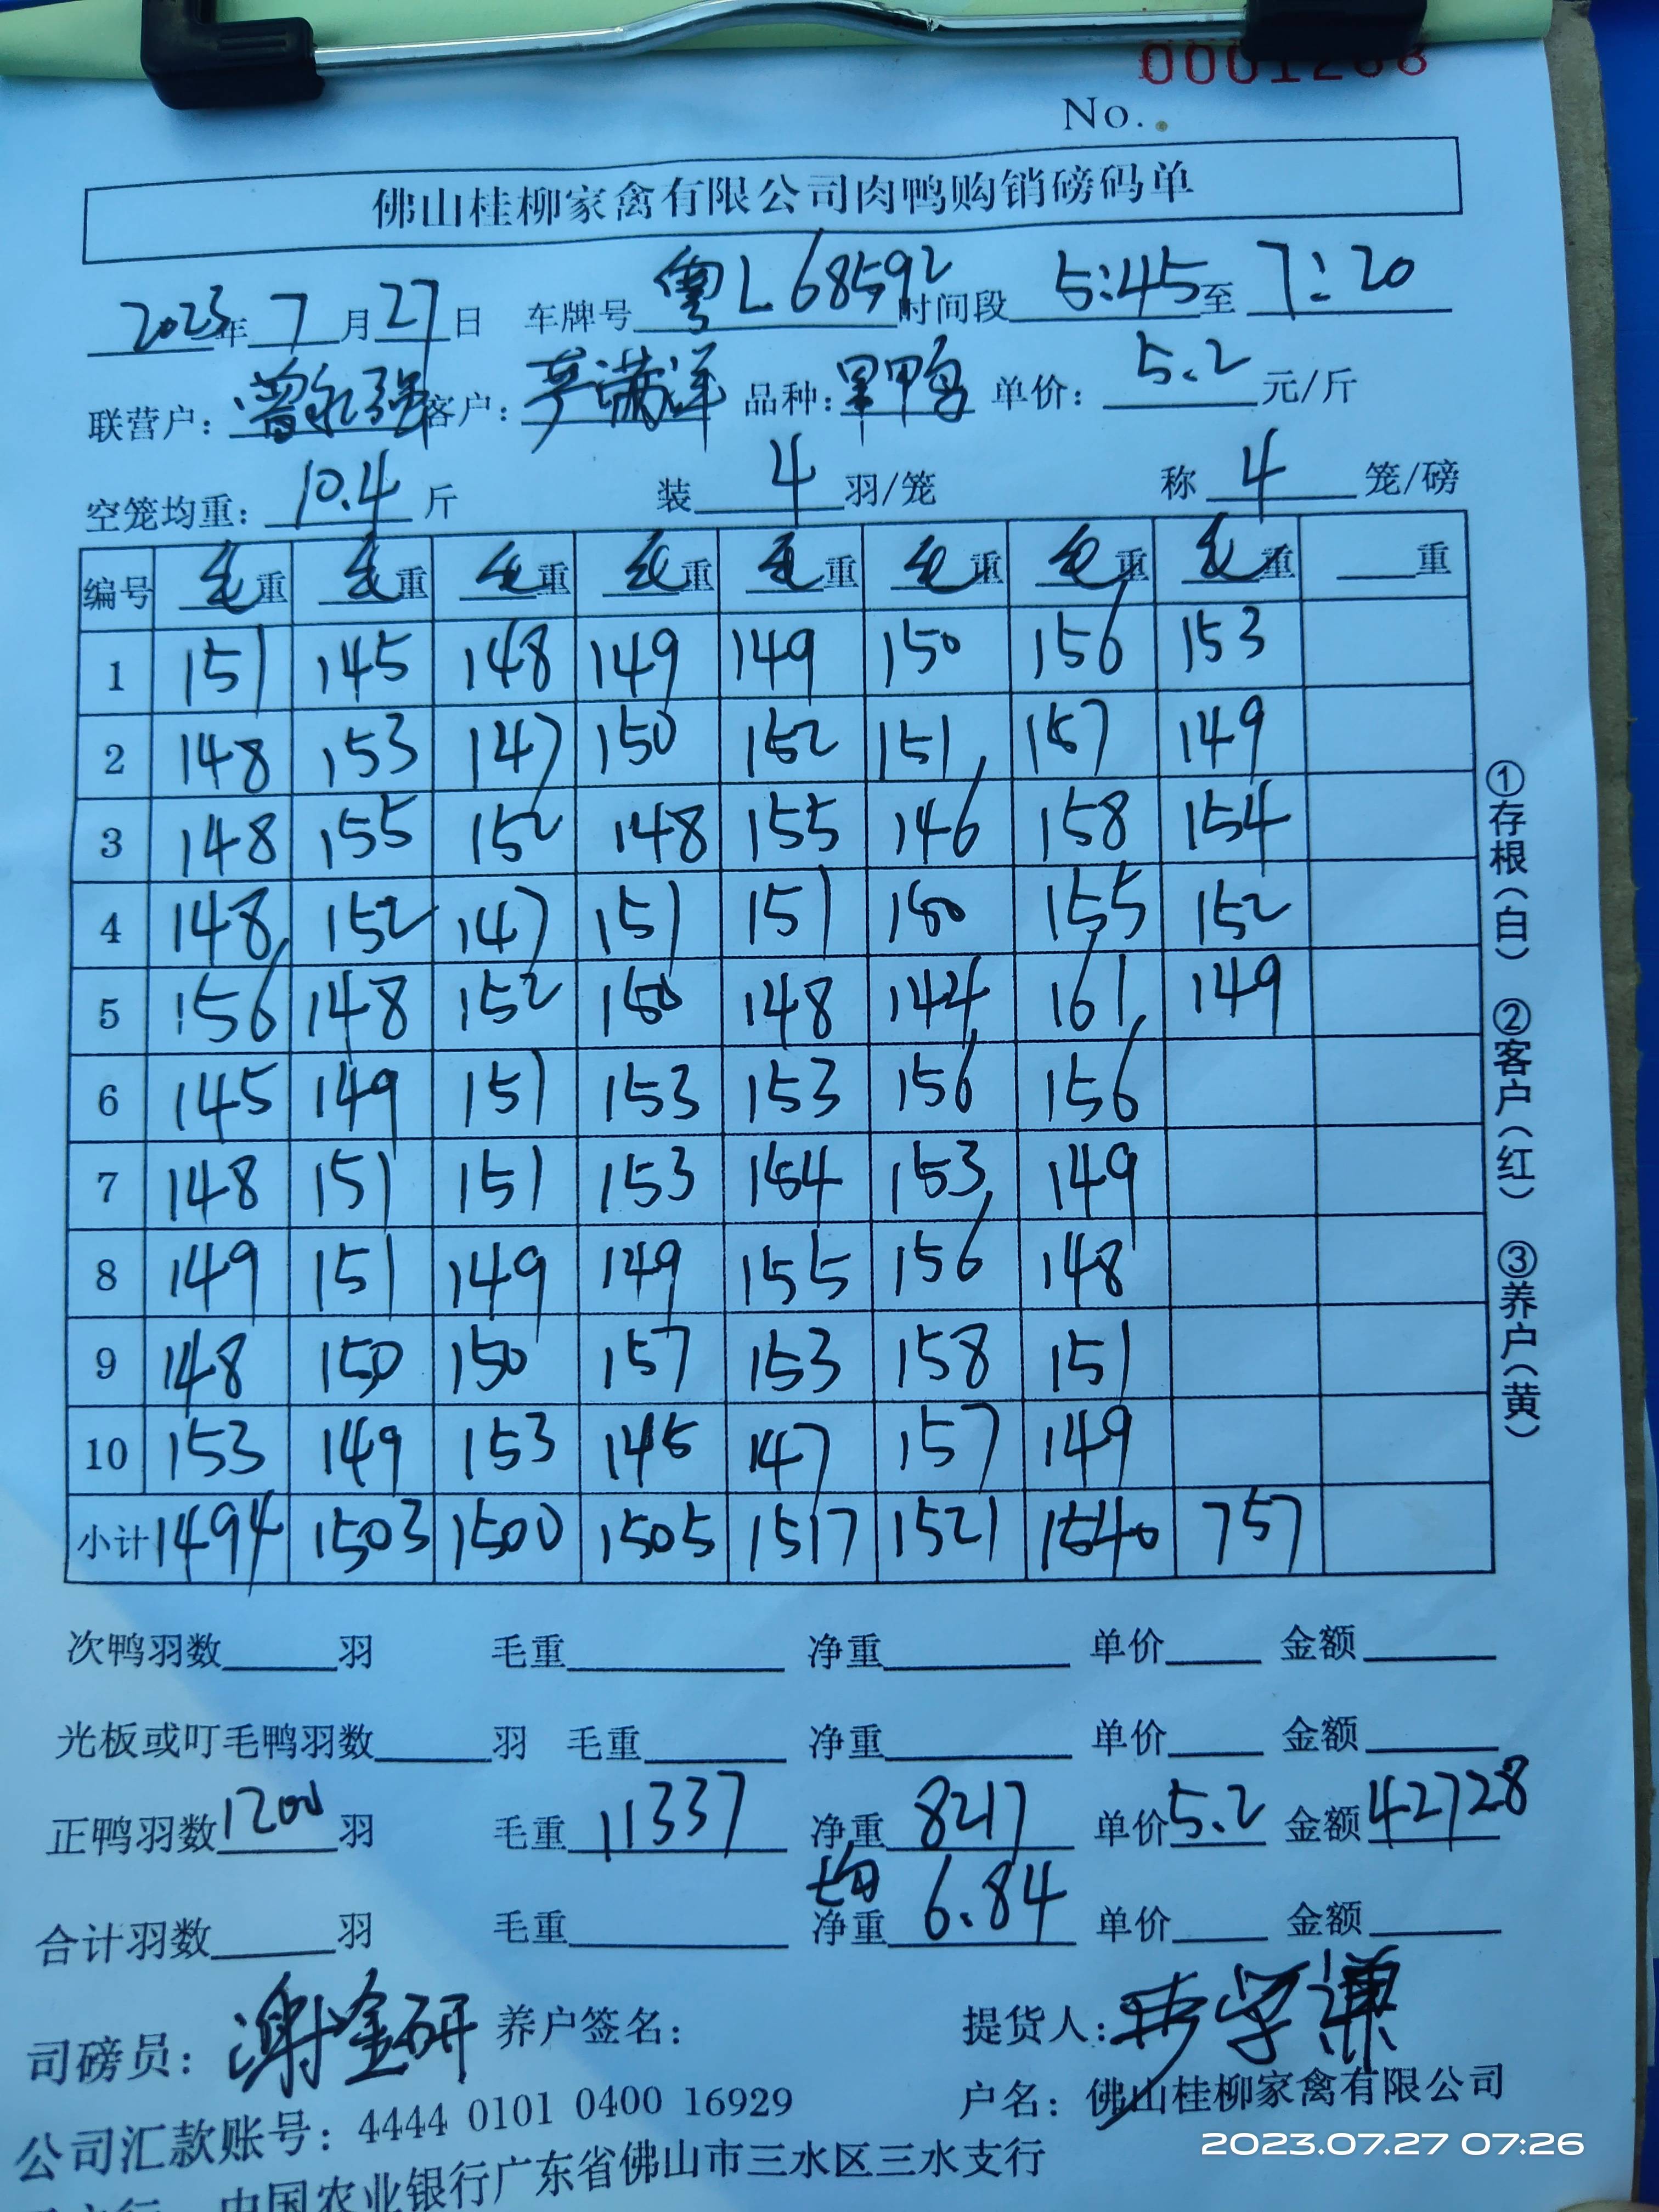 0001268
No.
佛山桂柳家禽有限公司肉鸭购销磅码单
2023年 7 月 27 日 车牌号 粤L68592 时间段 5:45 至 7:20
联营户: 曾永强 客户: 满洋 品种: 单价: 5.2 元/斤
空笼均重: 10.4 斤 装 4 羽/笼 称 4 笼/磅
编号 毛重 毛重 毛重 毛重 毛重 毛重 毛重 毛重 重
1 151 145 148 149 149 150 156 153
2 148 153 147 150 152 151 157 149
3 148 155 152 148 155 146 158 154
4 148 152 147 151 151 150 155 152
5 156 148 152 150 148 144 161 149
6 145 149 151 153 153 156 156
7 148 151 151 153 154 153 149
8 149 151 149 149 155 156 148
9 148 150 150 157 153 158 151
10 153 149 153 145 147 157 149
小计 1494 1503 1500 1505 1517 1521 1540 757
①存根(白) ②客户(红) ③养户(黄)
次鸭羽数 羽 毛重 净重 单价 金额
光板或叮毛鸭羽数 羽 毛重 净重 单价 金额
正鸭羽数 1200 羽 毛重 11337 净重 8217 单价 5.2 金额 42728
合计羽数 羽 毛重 均净重 6.84 单价 金额
司磅员: 谢金研 养户签名: 提货人:
公司汇款账号: 4444 0101 0400 16929 户名: 佛山桂柳家禽有限公司
中国农业银行广东省佛山市三水区三水支行
2023.07.27 07:26